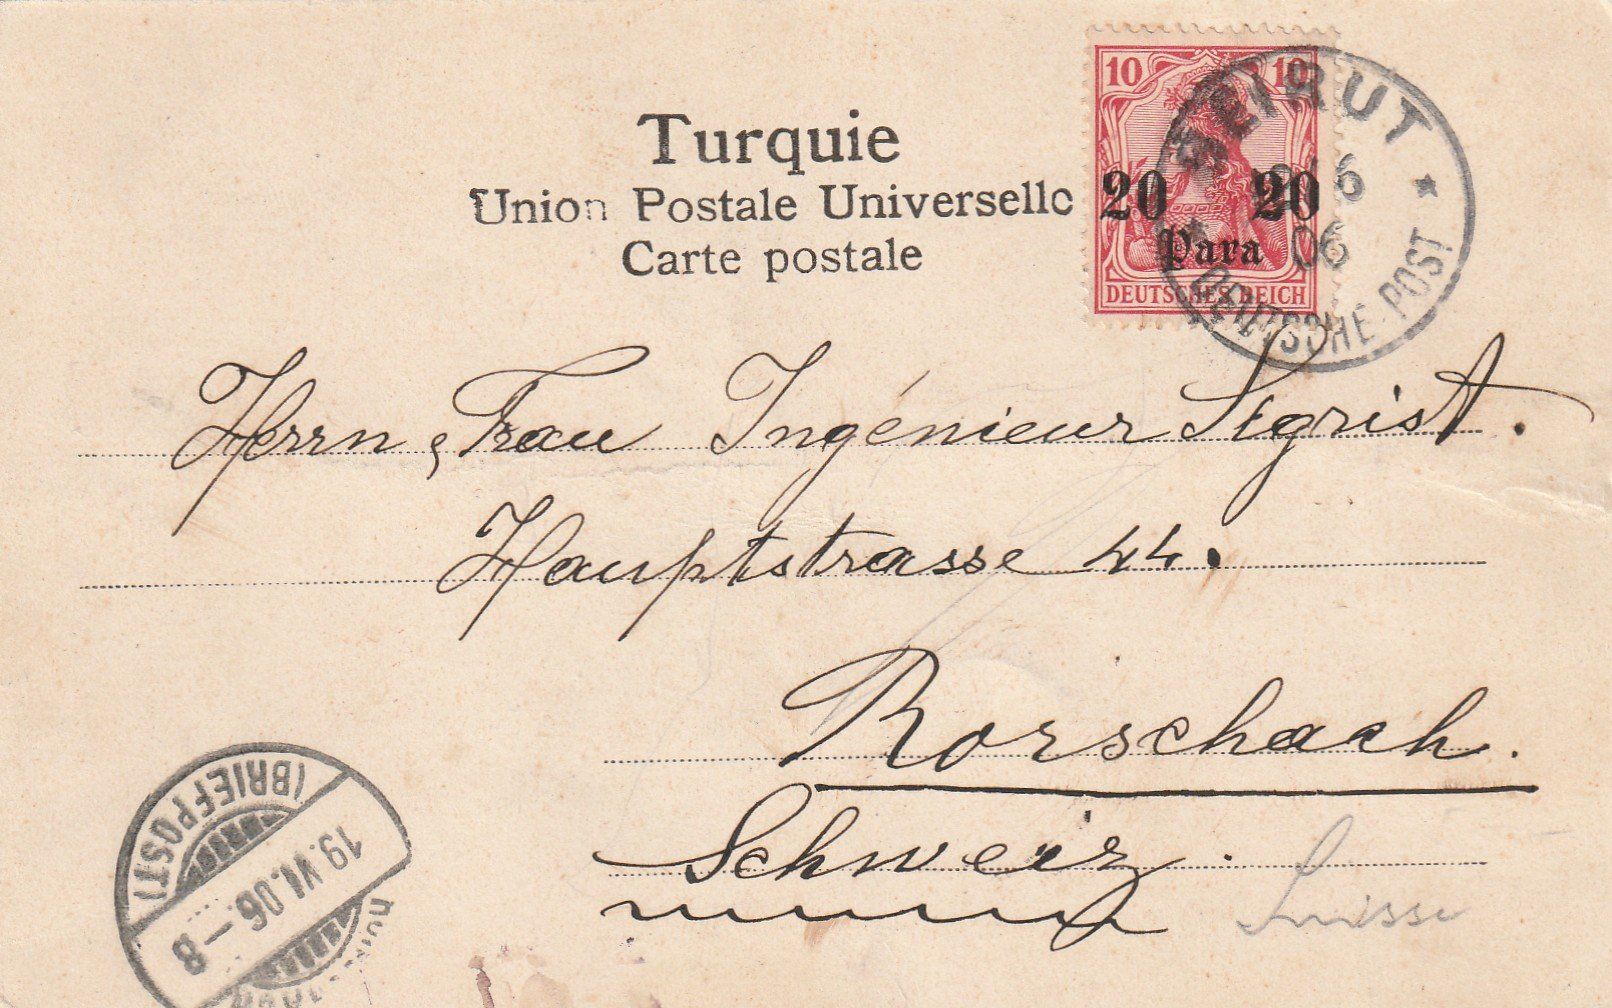 Turquie
Union Postale Universelle
Carte postale
10 10
20 20
Para
DEUTSCHES REICH
BEIRUT
06
DEUTSCHE POST
Herrn & Frau Ingénieur Sigrist.
Hauptstrasse 44.
Rorschach.
Schweiz.
Suisse
(BRIEFPOST)
19.VI.06-8